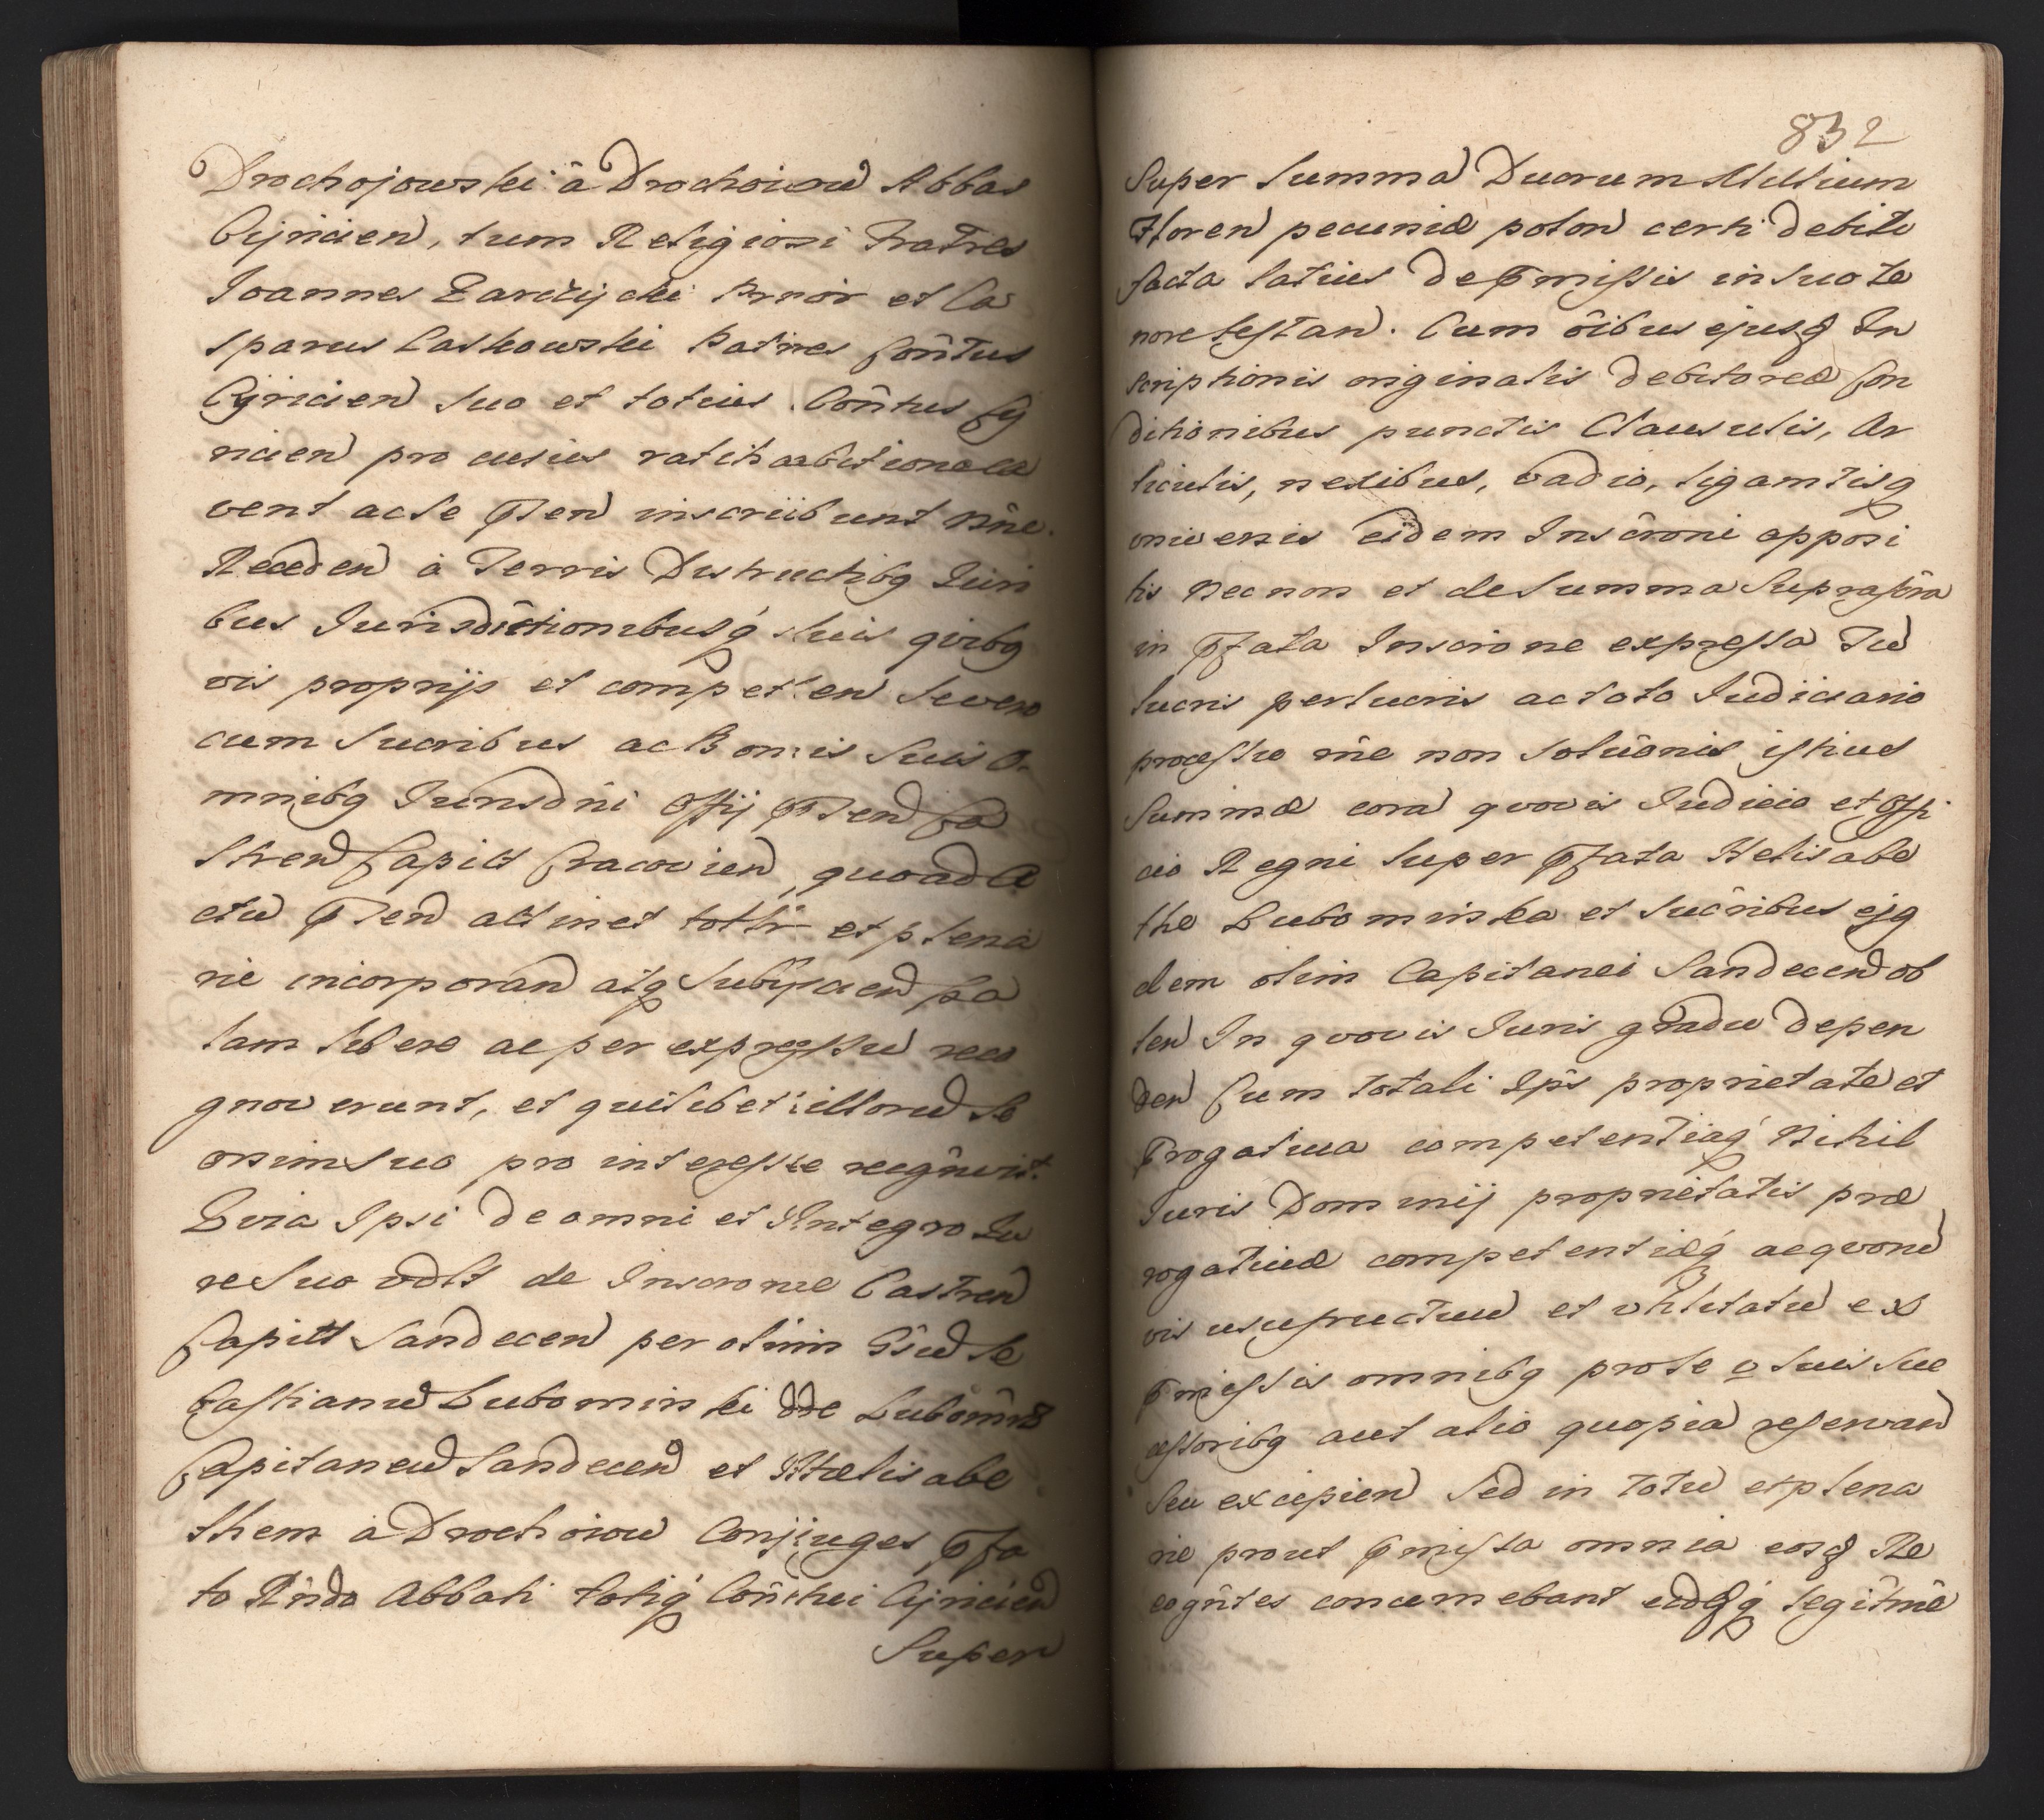 Drochojowski â Drochoiow Abbas
Cijricien, tum Religiosi Fratres
Joannes Zarczijcki Prior et Ca
sparus Caskowski Patres Con̂tus
Cijricien suo et totius Con̂tus Cij
ricien pro cuius ratihabitione ca
vent ac se pn̄ten inscribunt Bn̂e.
Receden à Terris Districtibq Juri
bus Jurisdictionibusq́ suis quibq
vis proprijs et competten se vero
cum Sucribus ac Bonis Suis O-
mnibq Jurisdn̂i Offij pn̄ten Ca
stren Capitt Cracovien, quoad A
ctu pn̄ten attinet tottr et plena
rie incorporan atq Subijcien pa
lam libere ac per expressu reco
gnoverunt, et quilibet illoru se
orsim suo pro interesse recĝnvit.
Qvia Ipsi de omni et Integro Ju
re suo vdlt de Inscrone Castren
Capitt Sandecen per olim Gŝu Se
bastianu Lubomirski dde Lubomirz
Capitaneu Sandecen et Hælisabe
them à Drochoiow Conjuges pfa
to Rn̂do Abbati totiq́ Con̂thui Cijricien
Super
832
Super Summa Duorum Millium
Floren pecuniæ polon certi debiti
facta latius de pmissis in suo te
nore testan. Cum ôibus ejusq In
scriptionis originalis debitoreæ Con
ditionibus punctis Clausulis, Ar
ticulis, nexibus, vadio, ligamtisq
univenis eîdem Inscr̂oni apposi
tis Necnon et de Summa Suprascr̂a
in pfata Inscrone expressa Tu
lucris perlucris ac toto Judiciario
processu rn̂e non Solûonis istius
Summæ cora qvovis Judicio et Offi
cio Regni super pfata Helisabe
tha Lubomirska et Sucr̂ibus ejq
dem olim Capitanei Sandecen ob
ten In qvovis Juris gradu depen
den Cum totali Ips̄ proprietate et
progativa competentiaq́ Nihil
Juris Dominij proprietatis præ
rogativæ competentiæq́ aeqvonu
vis usufructuu et vtilitatu ex
pmissis omnibq pro se v suis suc
cessoribq aut alio quopia reservan
seu excipien Sed in totu et plena
rie prout pmissa omnia eosq Re
cogn̂tes concernebant eodsq́ legitm̂e